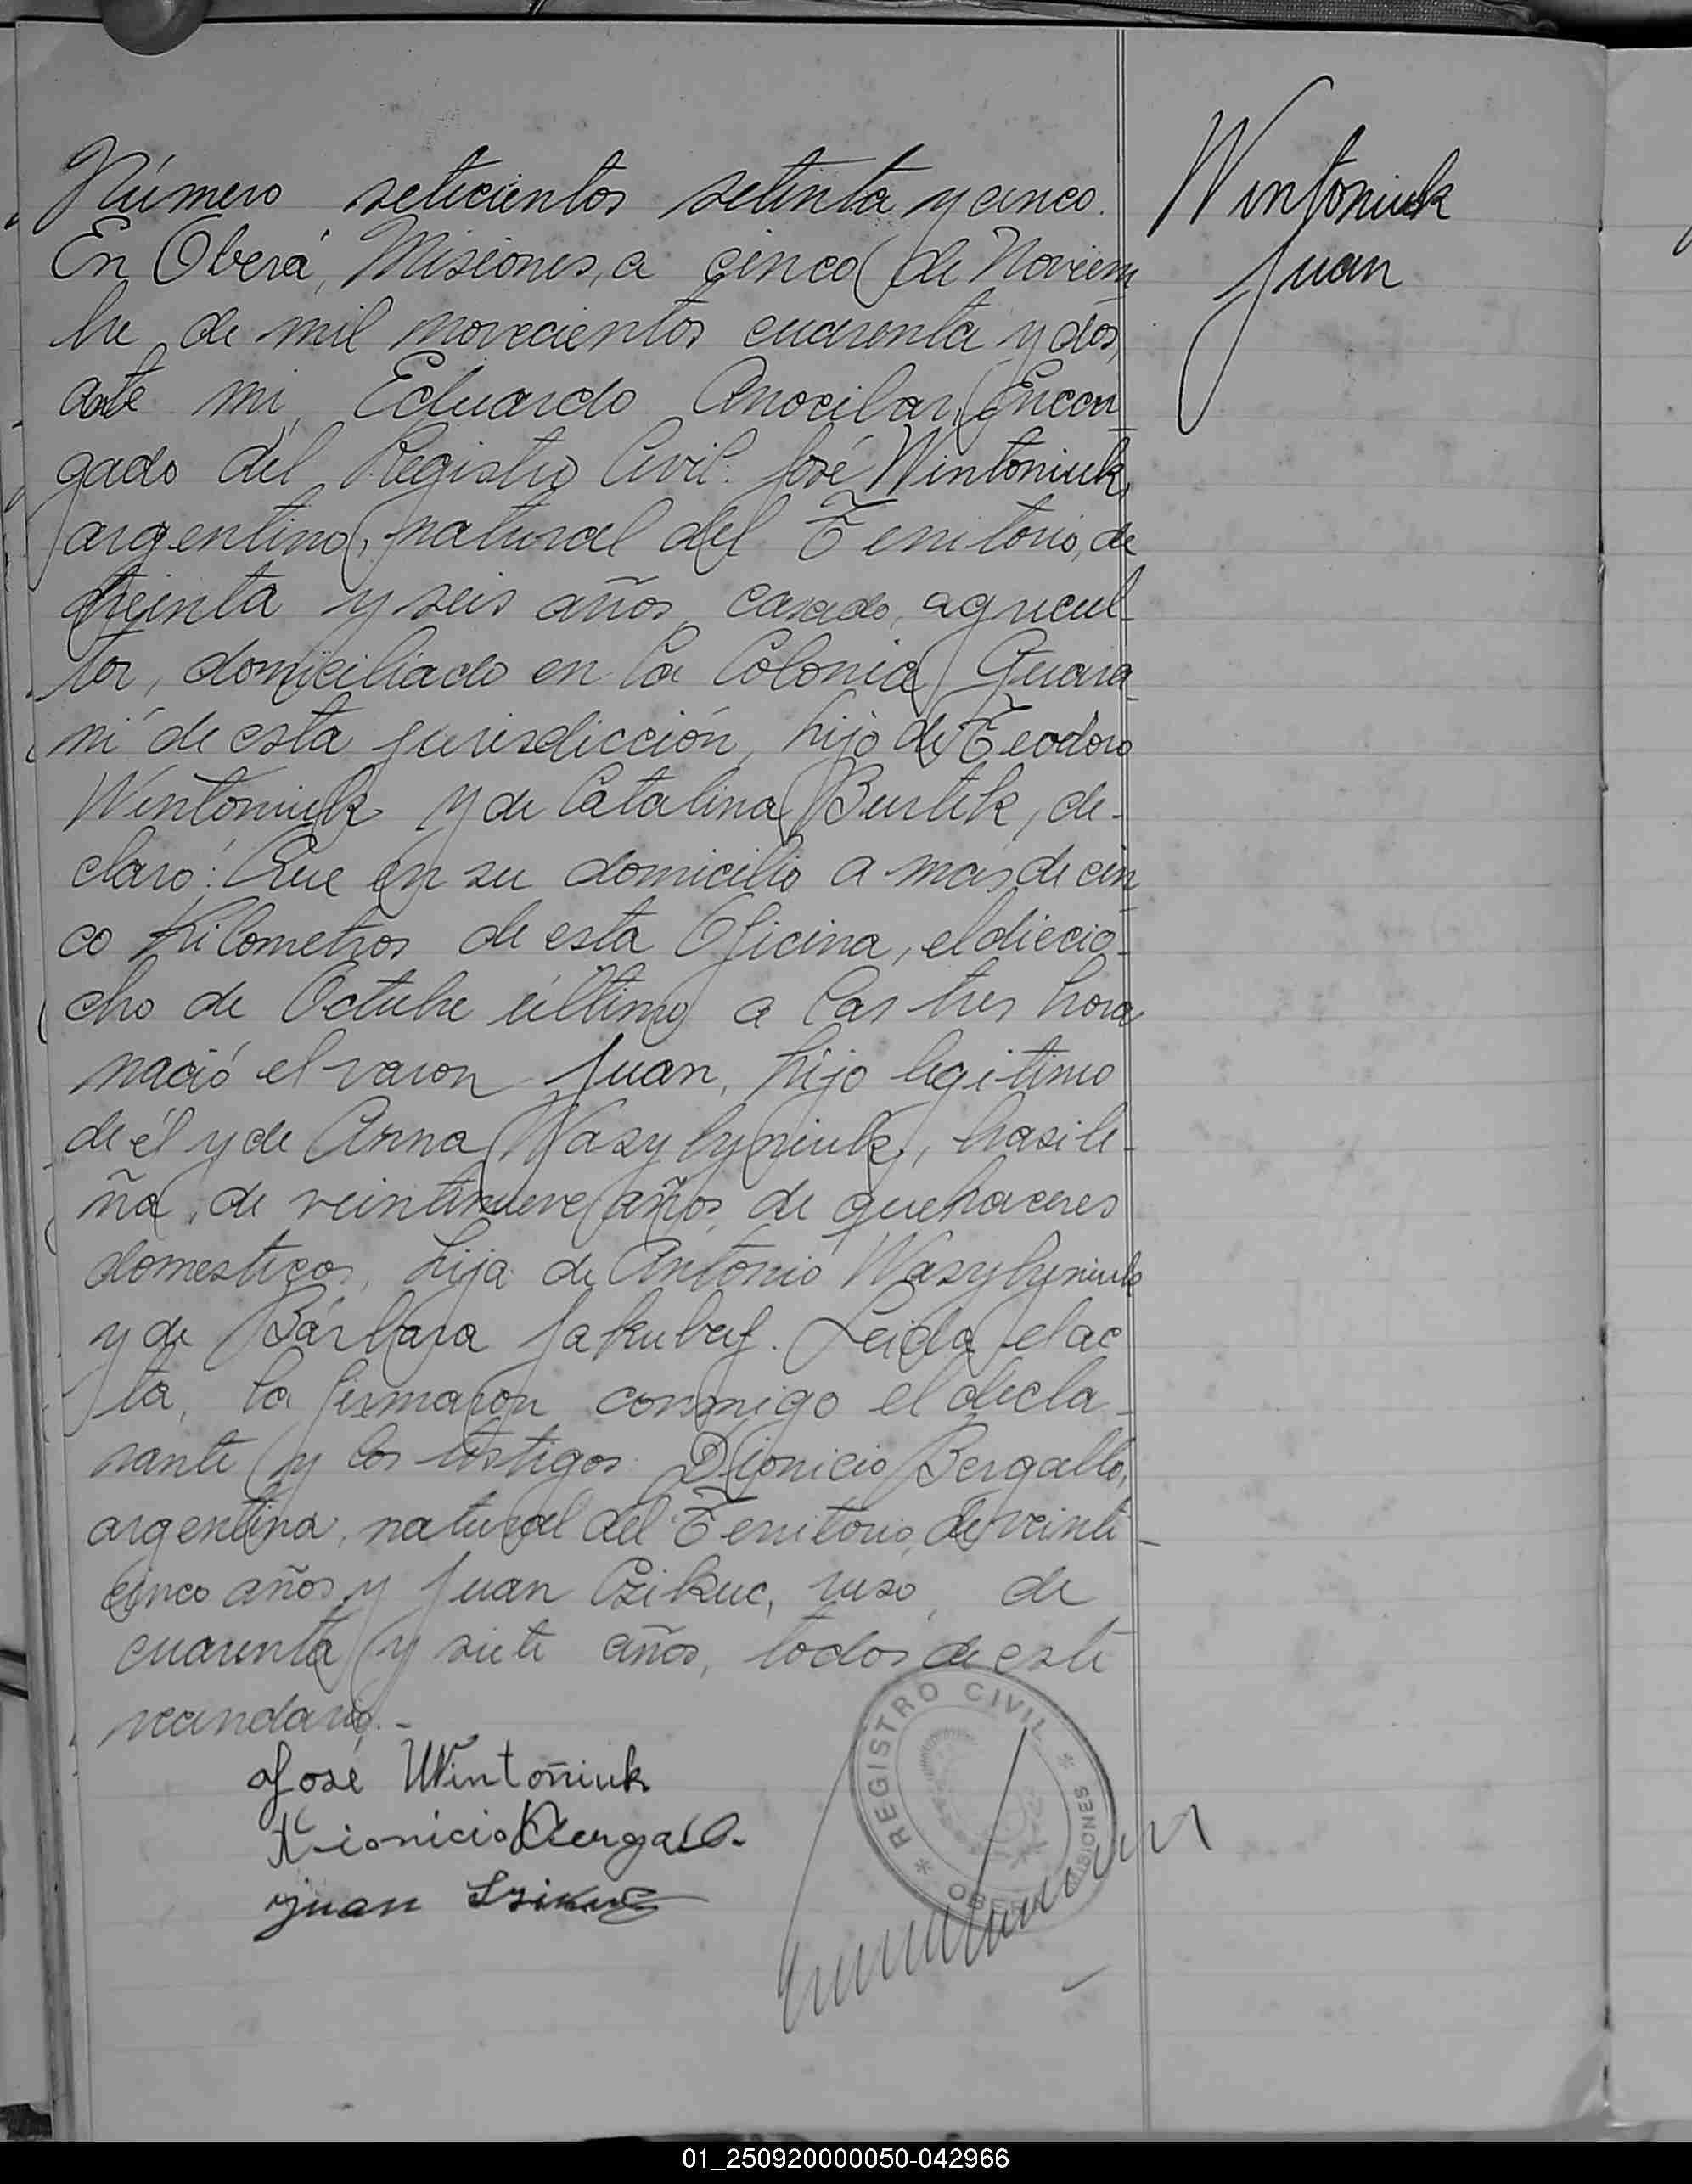 Número setecientos setenta y cinco.
Wintoniuk
Juan
En Oberá, Misiones, a cinco de Noviem
bre de mil novecientos cuarenta y dos,
ante mi, Eduardo Encar
gado del Registro Civil: José Wintoniuk,
argentino, natural del Territorio, de
treinta y seis años, casado, agricul-
tor, domiciliado en la Colonia Guara
ní de esta jurisdicción, hijo de Teodoro
Wintoniuk y de Catalina Burtik, de-
claró: Que en su domicilio a mas de cin
co Kilometros de esta Oficina, el diecio-
cho de Octubre último a las tres hora
nació el varon Juan, hijo legitimo
de él y de Anna Wasylyniuk, brasile-
ña, de veintinueve años, de quehaceres
domesticos, hija de Antonio Wasylyniuk
y de Bárbara Jakubey. Leida el ac
ta, la firmaron conmigo el decla-
rante y los testigos: Dionicio Bergallo,
argentino, natural del Territorio, de veinti-
cinco años y Juan Czikuc, ruso, de
cuarenta y siete años, todos de este
vecindario.-
José Wintoñiuk
Dionicio Bergallo.
Juan
* REGISTRO CIVIL *
OBERÁ MISIONES
01_250920000050-042966